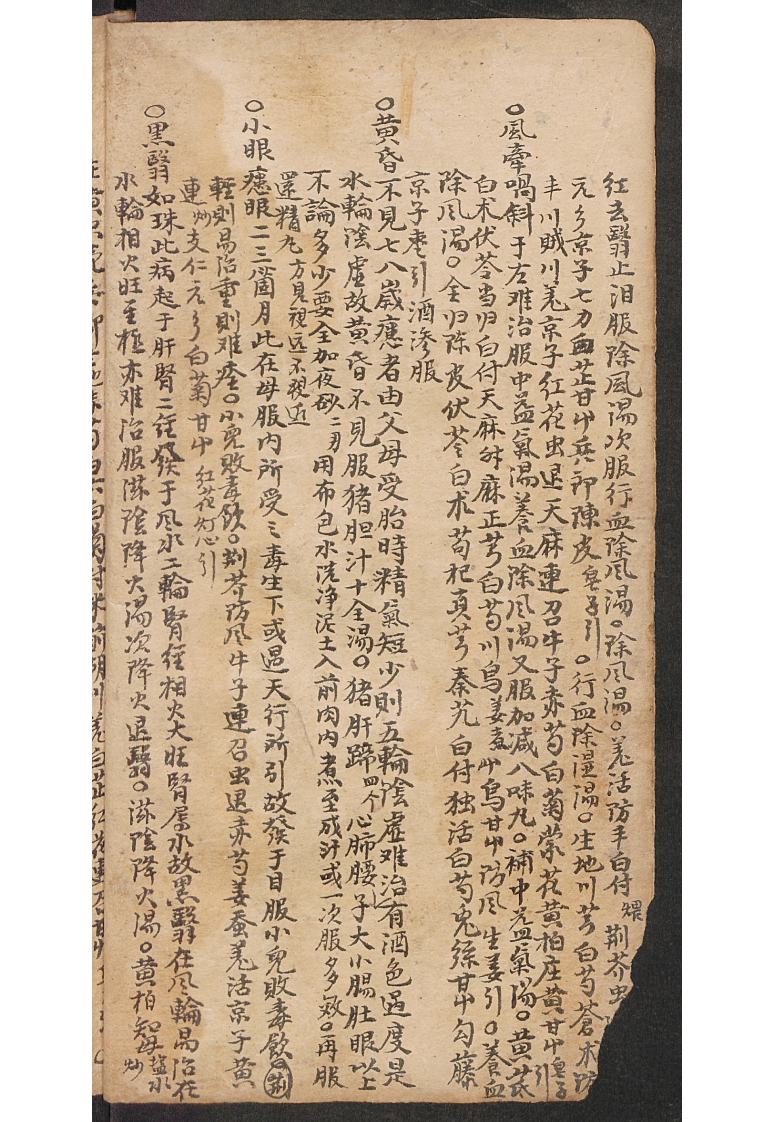 红去翳止泪服除風湯次服行血除風湯。除風湯。羌活防丰白付煨荆芥虫
元参京子七力血芷甘中兵郎陳皮皂子引。行血除湿湯。生地川芎白芍蒼术防
丰川賊川羌京子红花虫退天麻連召牛子赤芍白菊蒙花黄柏庄黄甘中皂子引
○風牽喎斜于左难治服中益氣湯養血除風湯又服加减八味丸。補中益氣湯。黄茋
白术伏苓当归白付天麻升麻正芎白芍川烏姜蚕屮烏甘中防風生姜引。養血
除風湯。全归陈皮伏苓白术苟杞真芎秦艽白付独活白芍兎絲甘中勾藤
京子枣引酒渗服
○黄昏不見七八嵗瘜者由父母受胎時精氣短少則五輪陰虚难治有酒色過度是
水輪陰虚故黄昏不見服猪胆汁十全湯。猪肝蹄四个心肺腰子大小腸肚眼以上
不論多少要全加夜砂二刃用布包水洗净泥土入前肉内煮至成汁或一次服多效。再服
還精丸方見視远不視近
○小眼瘜眼二三箇月此在母腹内所受之毒生下或遇天行所引故發于目服小兒敗毒飲。荆
輕則易治重則难痊。小兒敗毒飲。荆芥防風牛子連召虫退赤芍姜蚕羌活京子黄
連炒支仁元参白菊甘中红花灯心引
○黑翳如珠此病起于肝腎二経發于風水二輪腎経相火大旺腎属水故黒翳在風輪易治在
水輪相火旺至極亦难治服滋陰降火湯次降火退翳。滋陰降火湯。黄柏知母盐水炒